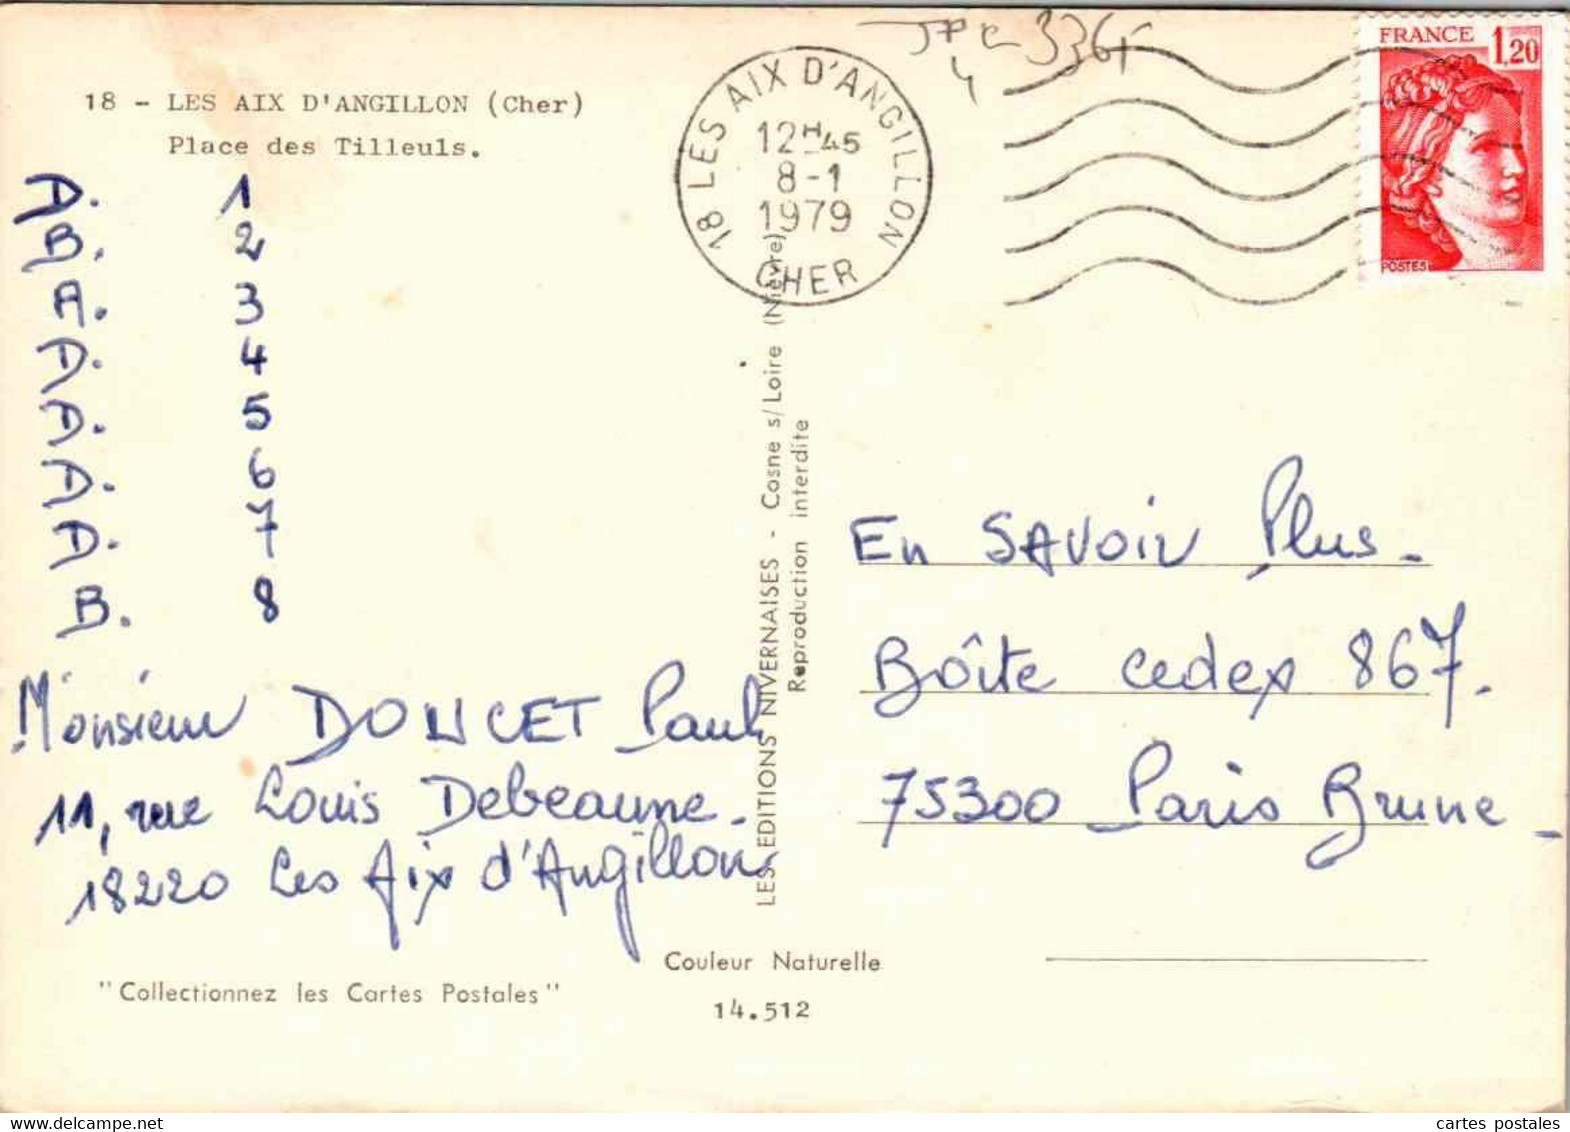 18 - LES AIX D'ANGILLON (Cher)
Place des Tilleuls.
18 LES AIX D'ANGILLON
12H45
8-1
1979
CHER
336
4
FRANCE 1,20
POSTES
D. 1
B. 2
A. 3
D. 4
D. 5
D. 6
D. 7
B. 8
Monsieur DOUCET Paul
11, rue Louis Debeaune.
18220 Les Aix d'Angillon
LES EDITIONS NIVERNAISES - Cosne s/Loire (Nièvre)
Reproduction interdite
En SAVOIR Plus.
Boîte cedex 867.
75300 Paris Brune
Couleur Naturelle
14.512
"Collectionnez les Cartes Postales"
cartes postales